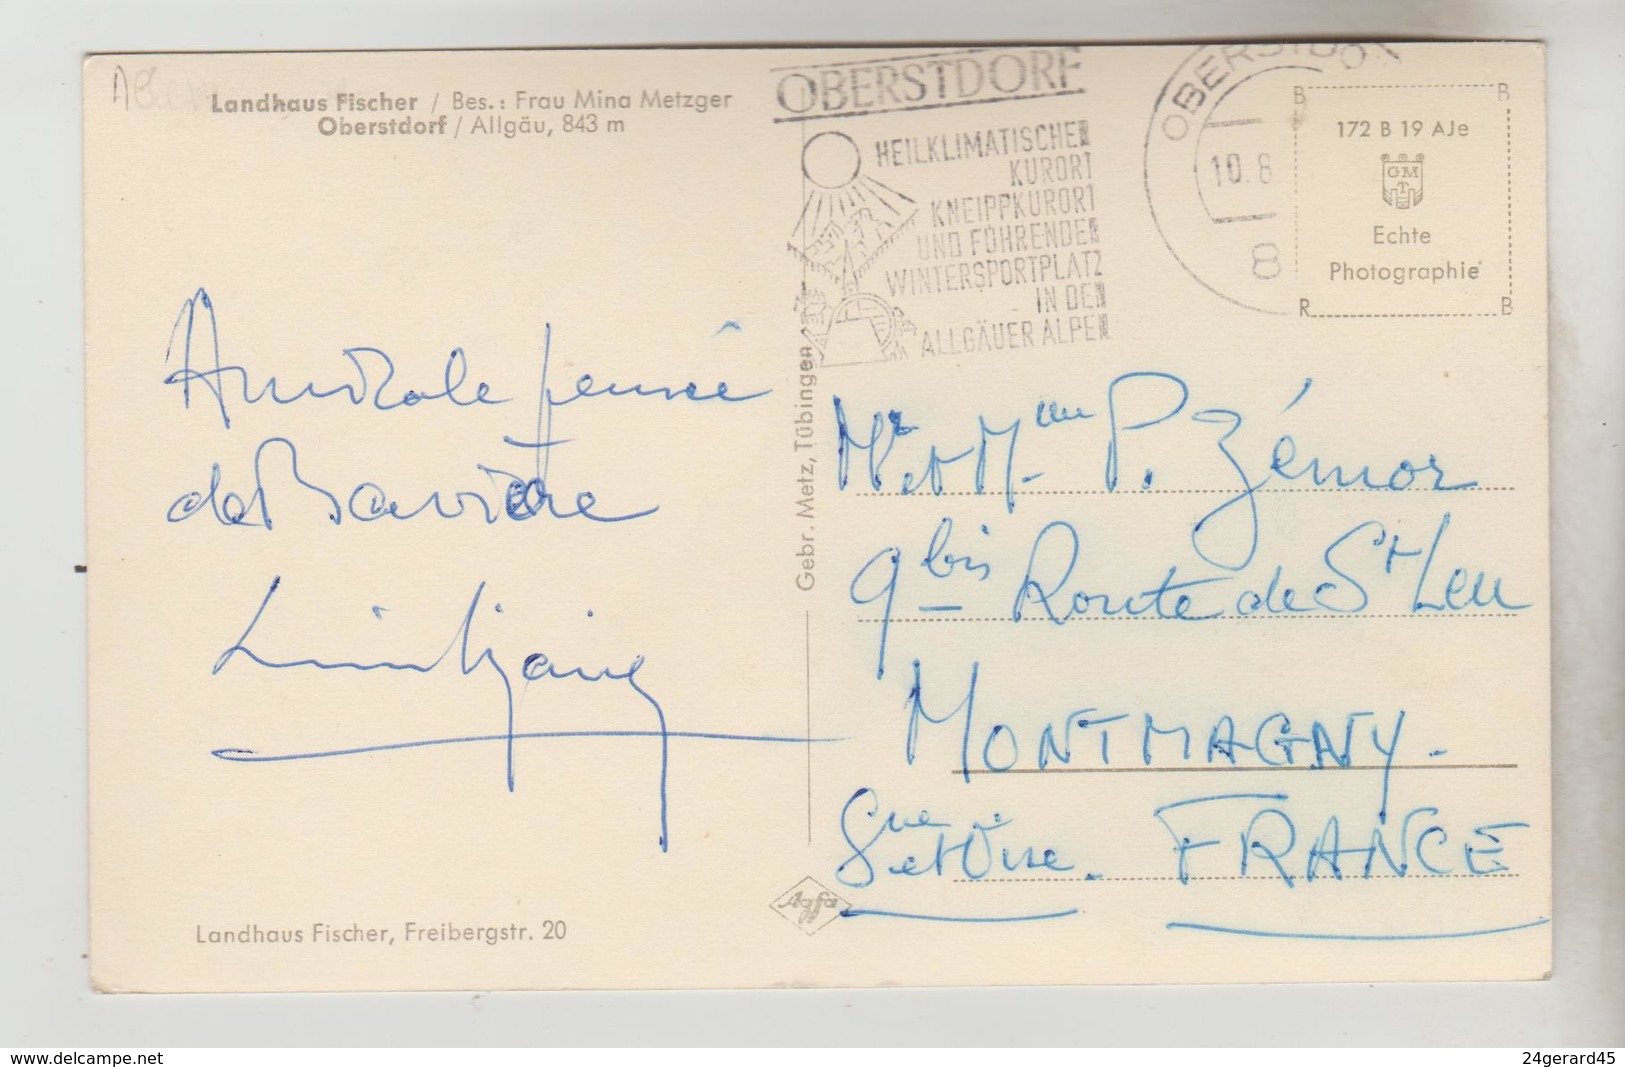 Landhaus Fischer / Bes.: Frau Mina Metzger
Oberstdorf / Allgäu, 843 m
OBERSTDORF
HEILKLIMATISCHER
KURORT
KNEIPPKURORT
UND FÜHRENDER
WINTERSPORTPLATZ
IN DEN
ALLGÄUER ALPEN
OBERSTDOR
10.8
8
172 B 19 AJe
GM
T
Echte
Photographie
B B
R B
Amicale pensée
de Bavière
Gebr. Metz, Tübingen
Mr et Mme P. Zémor
9 bis Route de St Leu
MONTMAGNY-
Seine et Oise. FRANCE
Agfa
Landhaus Fischer, Freibergstr. 20
www.delcampe.net
24gerard45